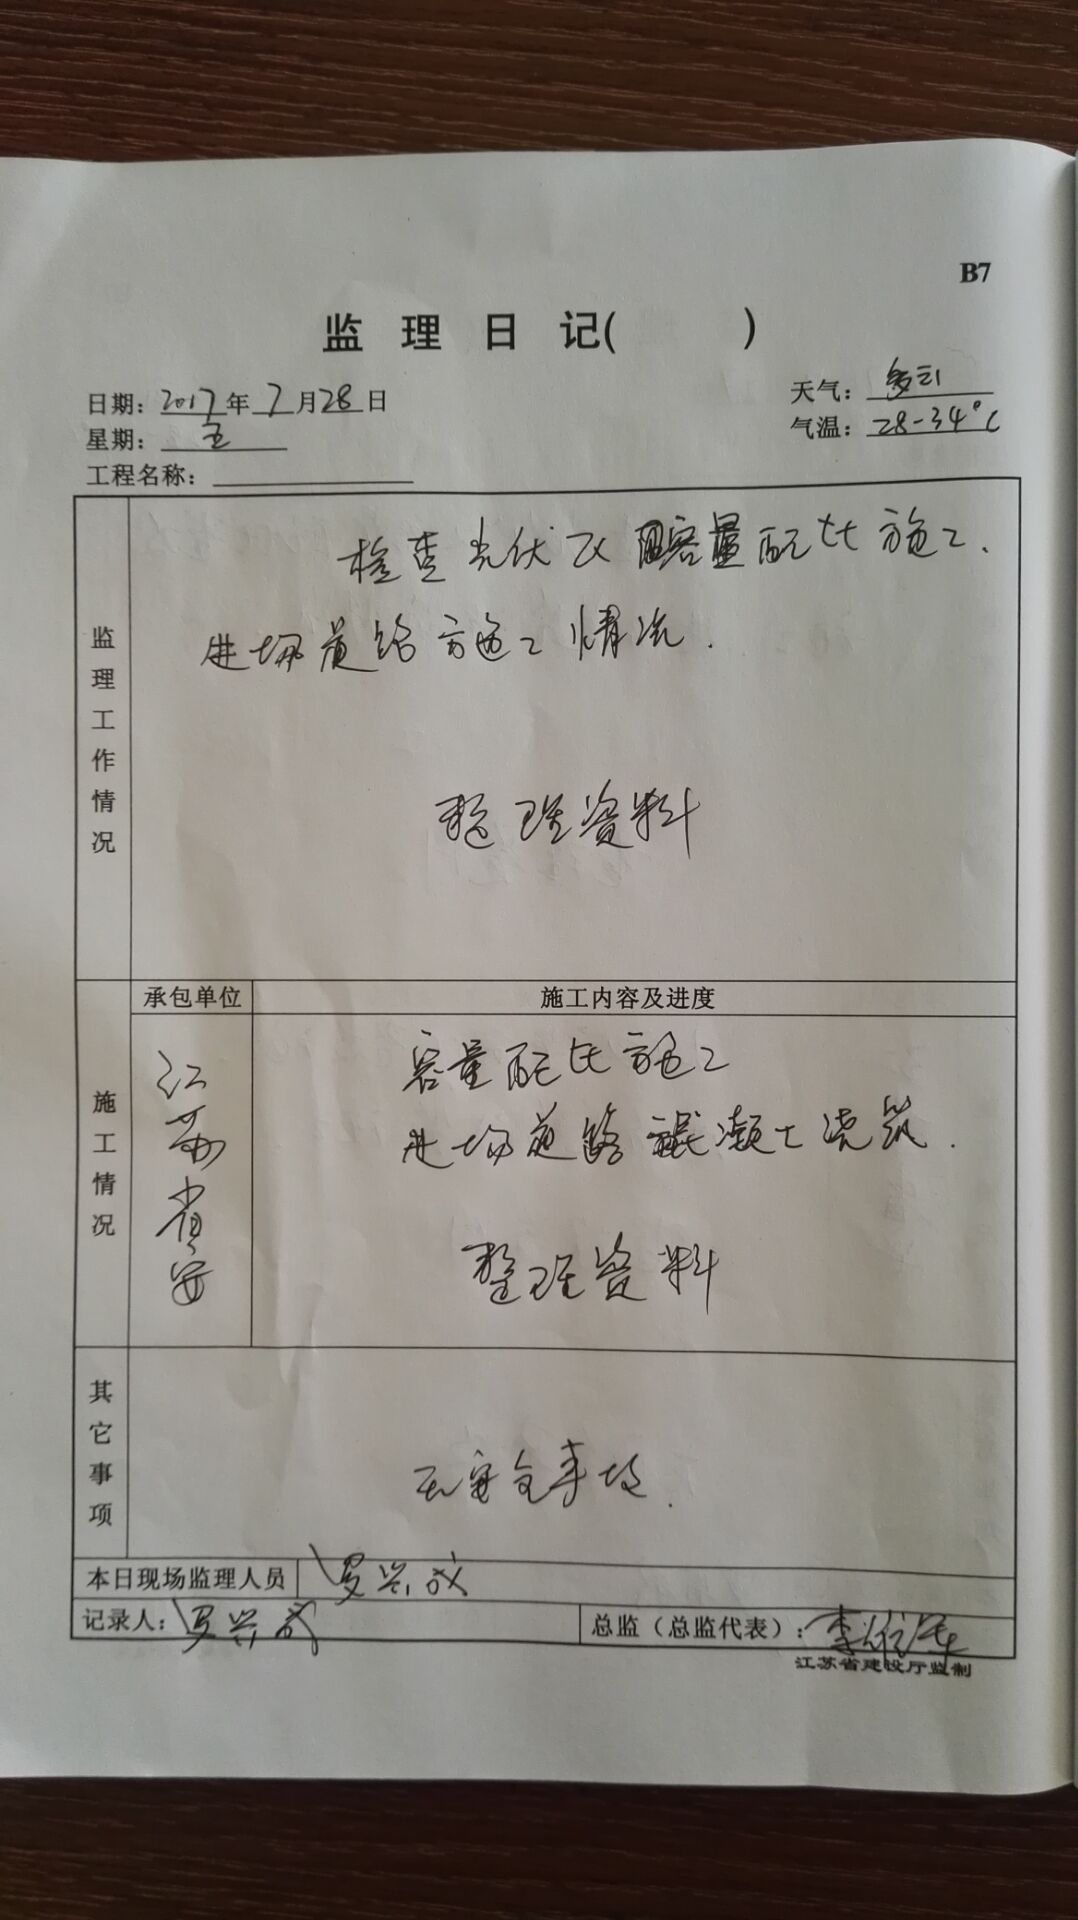 B7
监 理 日 记( )
日期: 2017 年 7 月 28 日
天气: 多云
星期: 五
气温: 28-34°C
工程名称:
监理工作情况
检查光伏区容量配比施工.
进场道路施工情况.
整理资料
施工情况
承包单位
施工内容及进度
江苏省安
容量配比施工
进场道路混凝土浇筑.
整理资料
其它事项
无安全事故.
本日现场监理人员 罗兴成
记录人: 罗兴成
总监（总监代表）: 李
江苏省建设厅监制